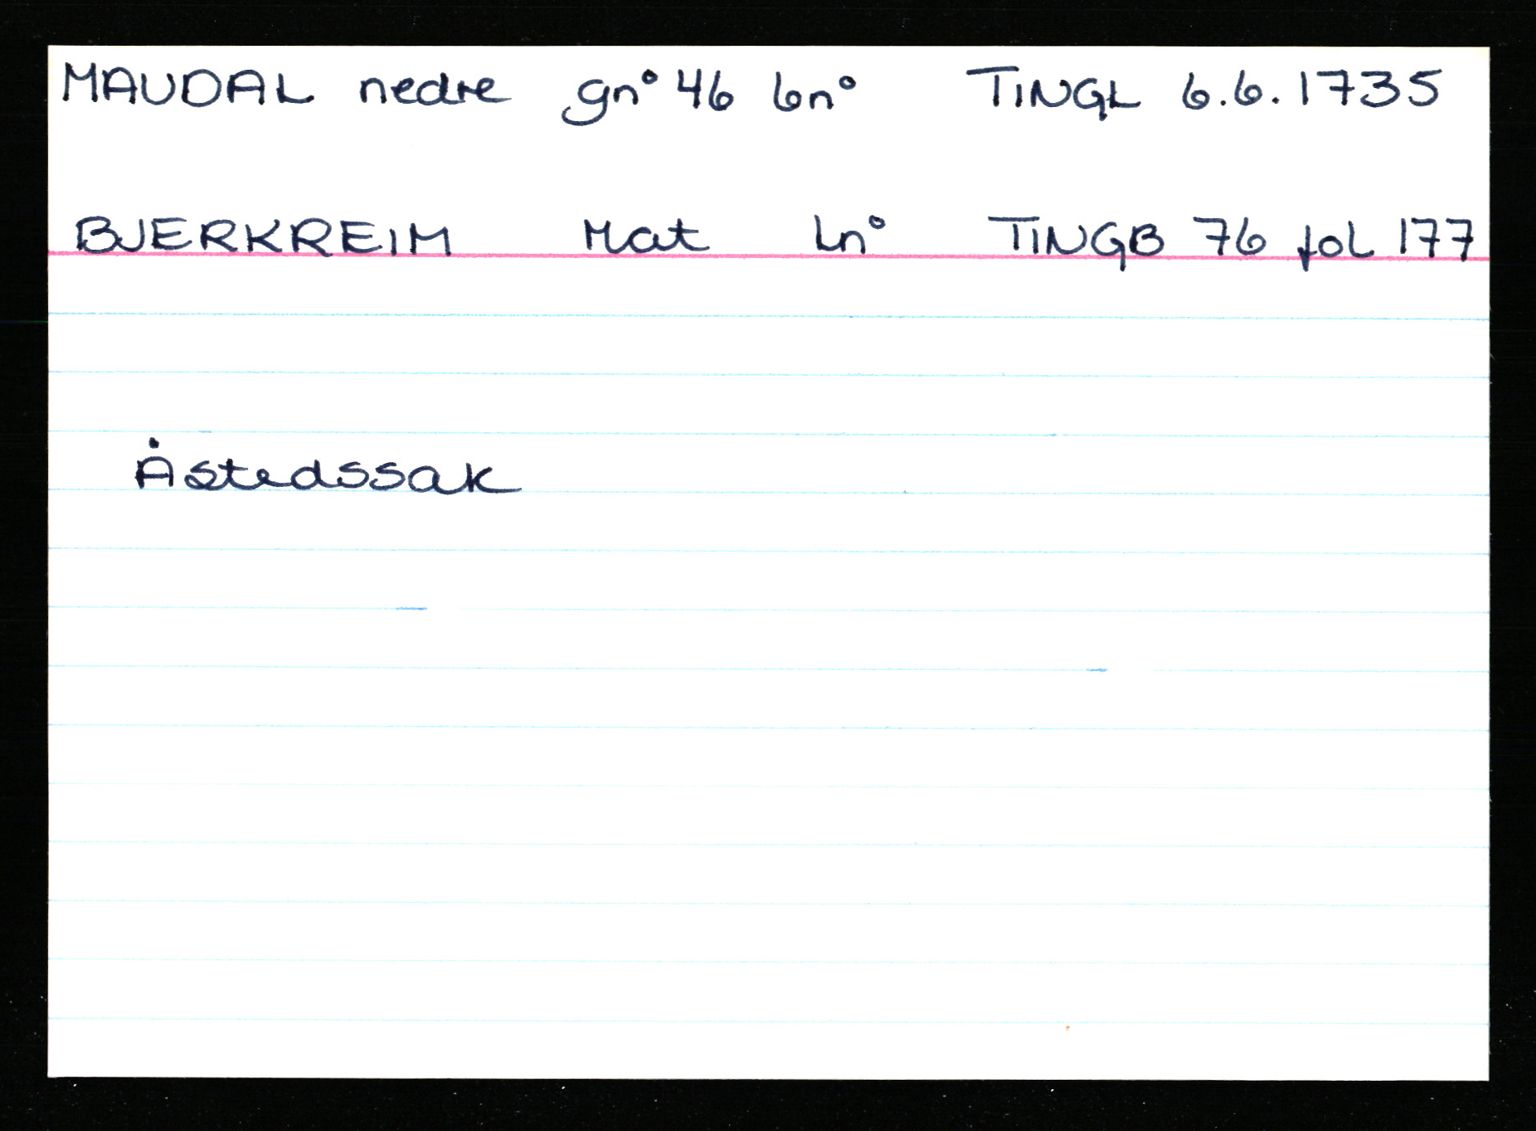 MAUDAL nedre gn° 46 bn° TINGL 6.6.1735
BJERKREIM Mat Ln° TINGB 76 fol 177
Åstedssak